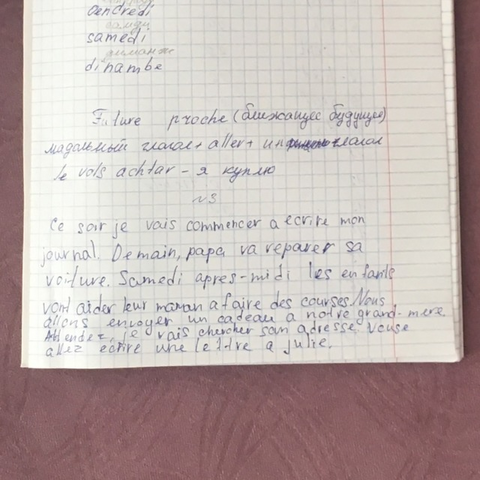 vendredi
samedi
диманж
dinambe
Future proche (ближайщее будущее)
мадальный глагол + aller + глагол
le vols achtar - я куплю
N3
Ce soir je vais commencer a ecrire mon
journal. Demain, papa va reparer sa
voiture. Samedi apres-midi les enfants
vont aider leur maman a faire des courses. Nous
allons envoyer un cadeau a notre grand-mere
Attendez, je vais chercher son adresse. Vouse
allez ecrire une lettre a julie.